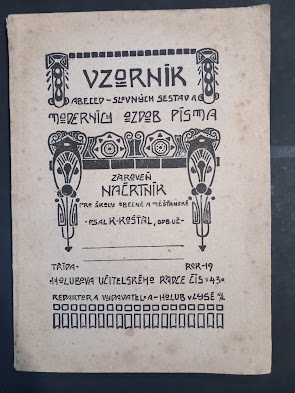 VZORNÍK
ABECED-SLOVNÝCH SESTAV A
MODERNÍCH OZDOB PÍSMA
ZÁROVEŇ
NAČRTNÍK
PRO ŠKOLY OBECNÉ A MĚŠŤANSKÉ
-PSAL K-KOŠŤÁL, ODB. UČ-
TŘÍDA- ROK-19
HOLUBOVA UČITELSKÉHO RÁDCE ČÍS=43=
REDAKTOR A VYDAVATEL A-HOLUB V LYSÉ N/L